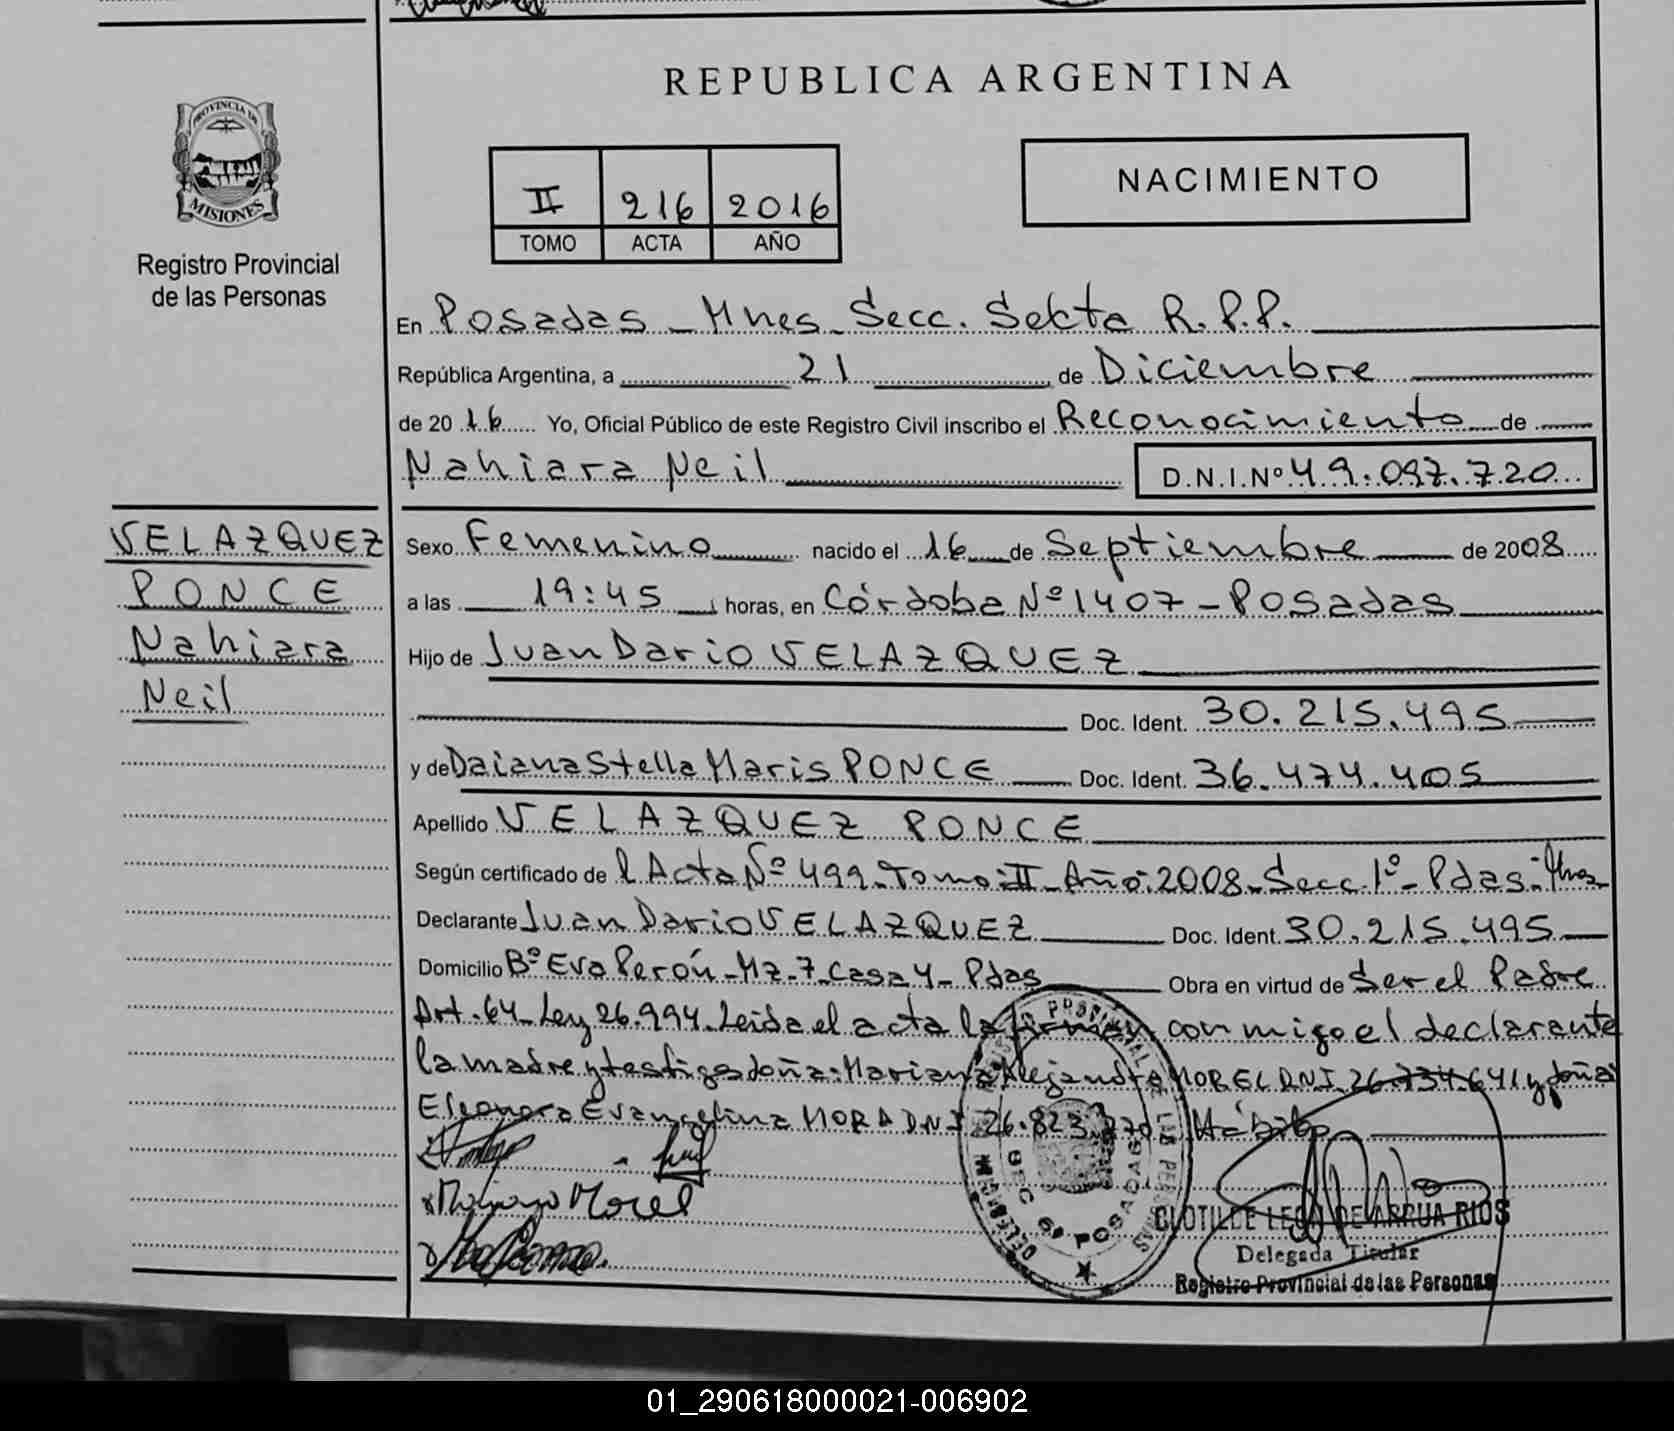 REPUBLICA ARGENTINA
PROVINCIA DE
MISIONES
Registro Provincial
de las Personas
II 216 2016
TOMO ACTA AÑO
NACIMIENTO
En Posadas - Mnes - Secc. Sekta R.P.P.
República Argentina, a 21 de Diciembre
de 2016 Yo, Oficial Público de este Registro Civil inscribo el Reconocimiento de
Nahiara Neil D.N.I.Nº 49.097.720
VELAZQUEZ
PONCE
Nahiara
Neil
Sexo Femenino nacido el 16 de Septiembre de 2008
a las 19:45 horas, en Córdoba Nº 1407 - Posadas
Hijo de Juan Dario VELAZQUEZ
Doc. Ident. 30.215.495
y de Daiana Stella Maris PONCE Doc. Ident. 36.474.405
Apellido VELAZQUEZ PONCE
Según certificado de l Acta Nº 499 - Tomo: II - Año: 2008 - Secc. 1º - Pdas - Mnes
Declarante Juan Dario VELAZQUEZ Doc. Ident. 30.215.495
Domicilio Bº Eva Perón - Mz - 7 - Casa 4 - Pdas Obra en virtud de Ser el Padre
Art. 64 - Ley 26.994. Leida el acta la firman conmigo el declarante
la madre y testigos doña: Mariana Alejandra MOREL DNI 26.734.641 y doña
Eleonora Evangelina MORA DNI 26.823.
Mariana Morel
REGISTRO PROVINCIAL DE LAS PERSONAS
DELEGACION
SEC 6ª POSADAS
CLOTILDE LEDA DE ARRUA RIOS
Delegada Titular
Registro Provincial de las Personas
01_290618000021-006902